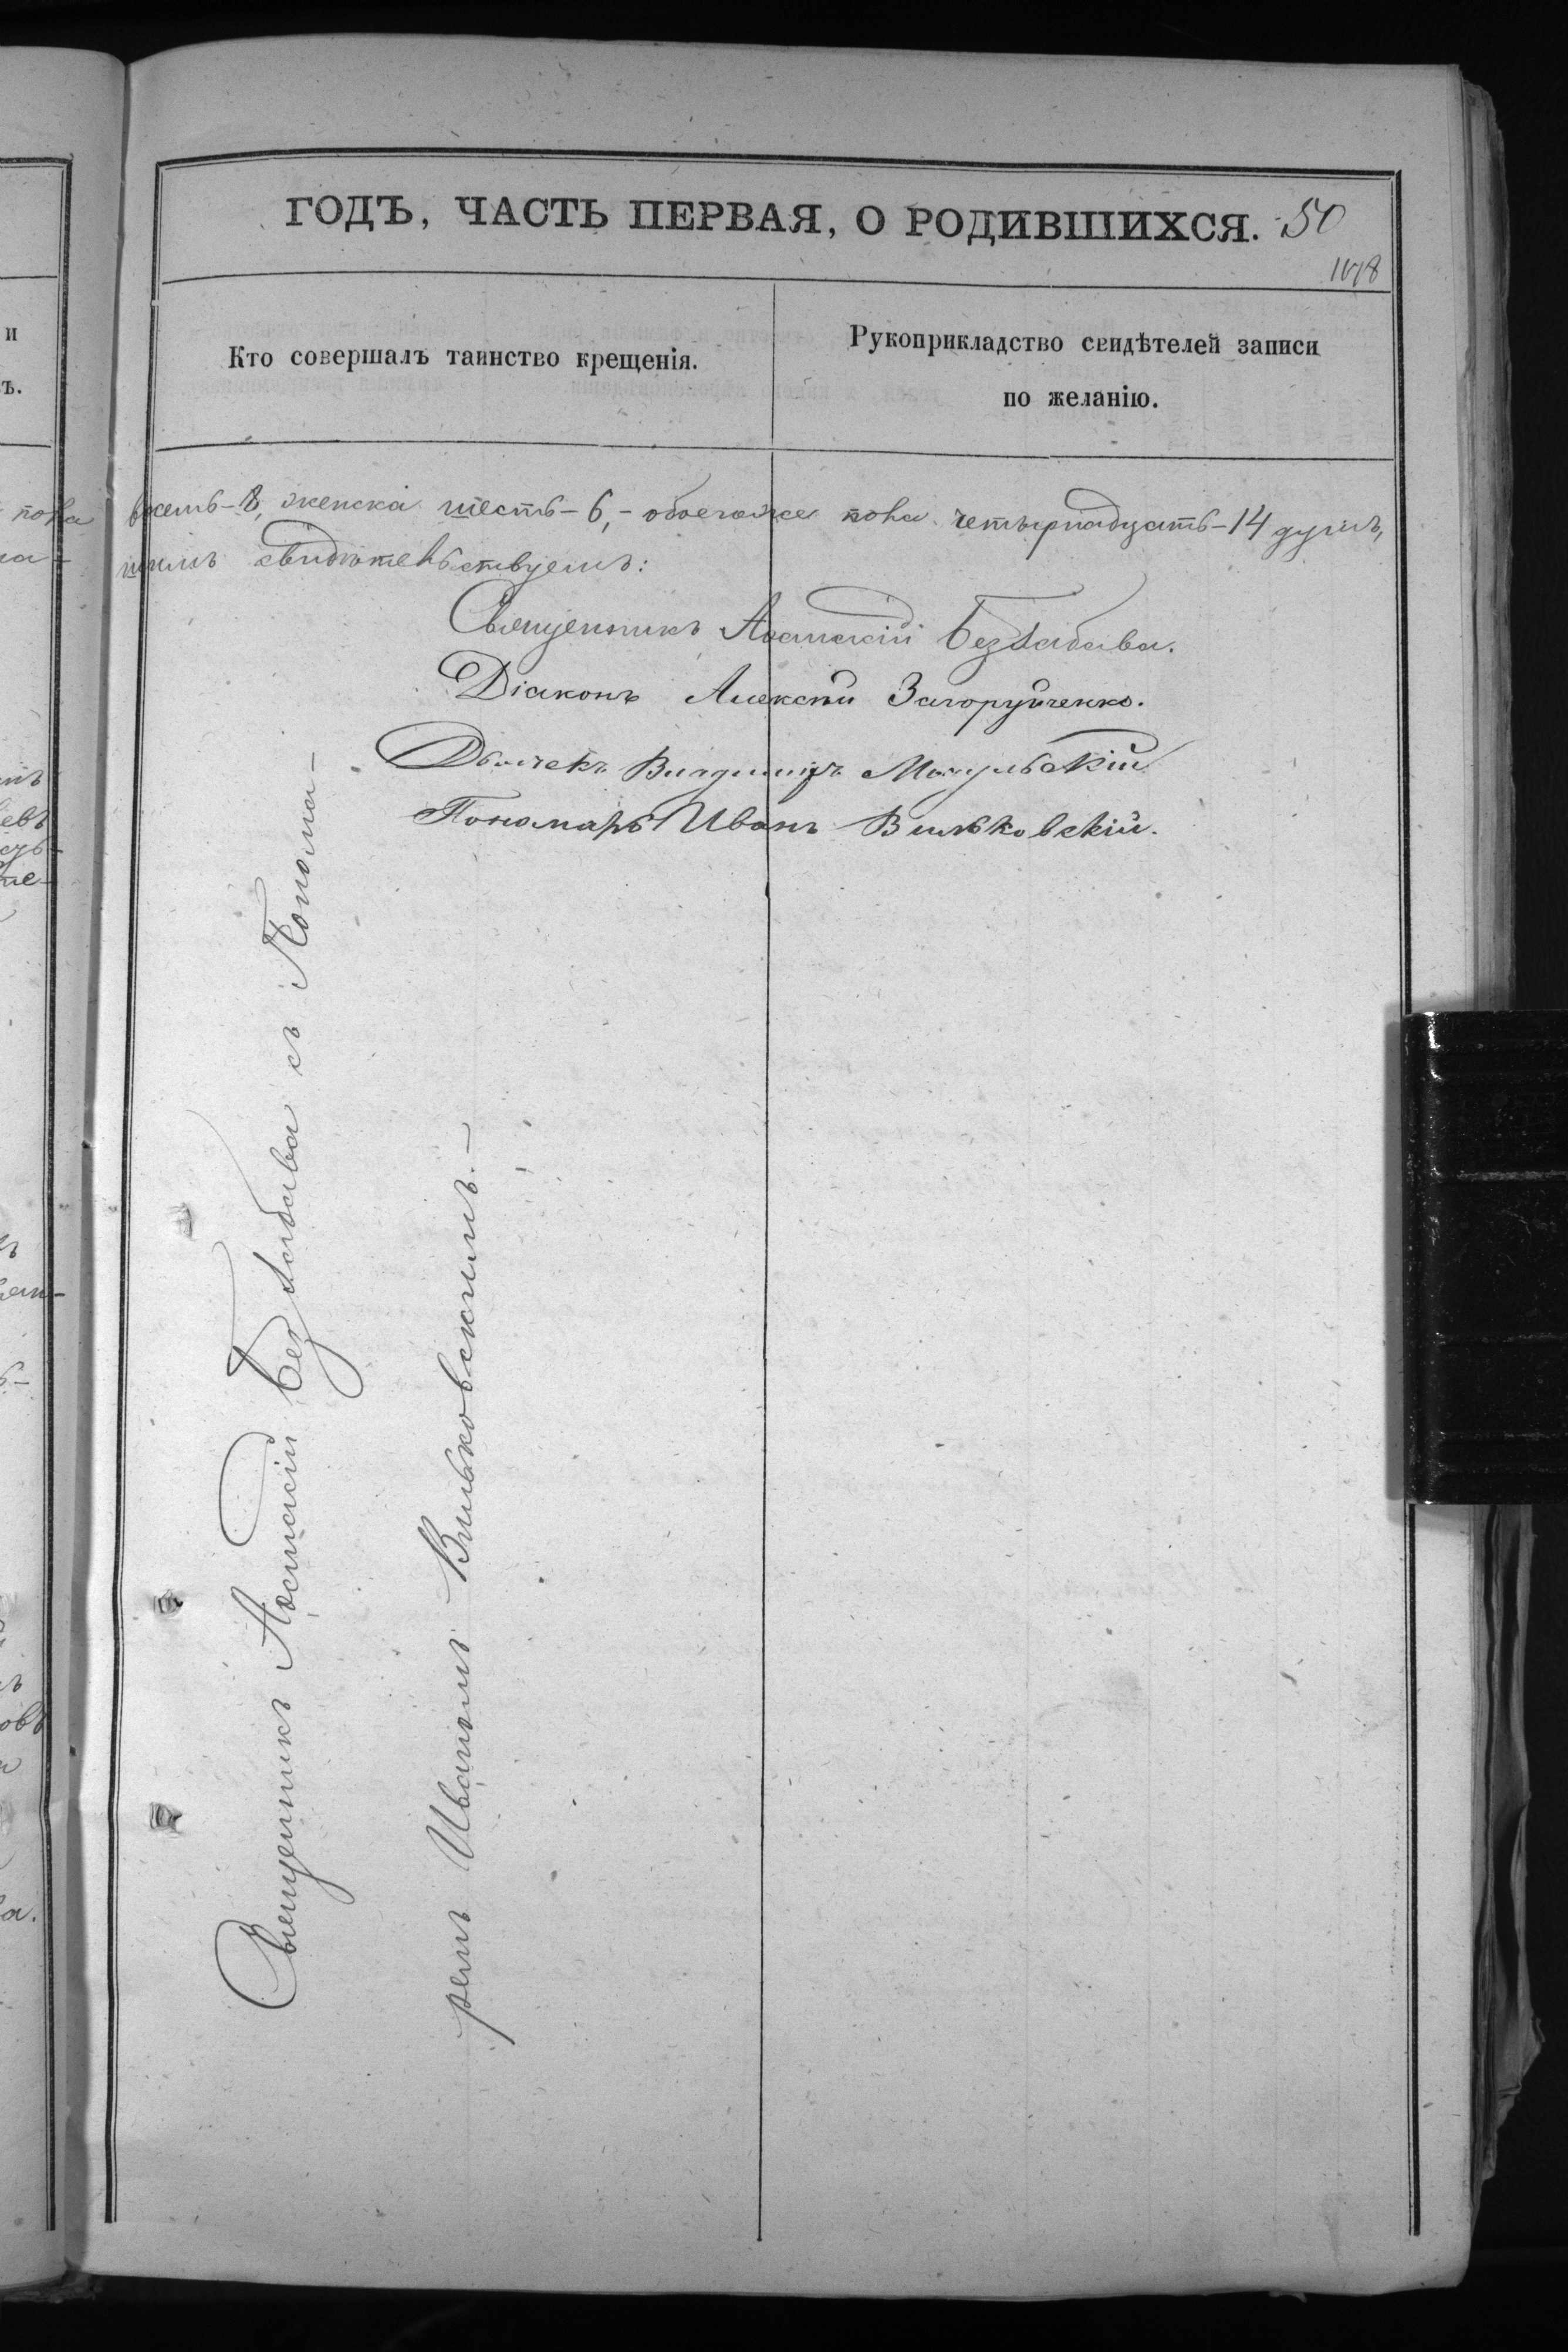 ГОДЪ, ЧАСТЬ ПЕРВАЯ, О РОДИВШИХСЯ. 50
1078
Кто совершалъ таинство крещенія.
Рукоприкладство свидѣтелей записи
по желанію.
восемь-8, женска шесть-6,- обоегоже пола четырнадцать-14 душъ,
свидѣтельствуемъ:
Священникъ Безбабава.
Діаконъ Алексѣй Загоруйченко.
Дьячекъ Владиміръ
Пономарь Иванъ Вильковскій.
Священникъ Безбабава съ Понома-
ремъ Иваномъ Вильковскимъ.-